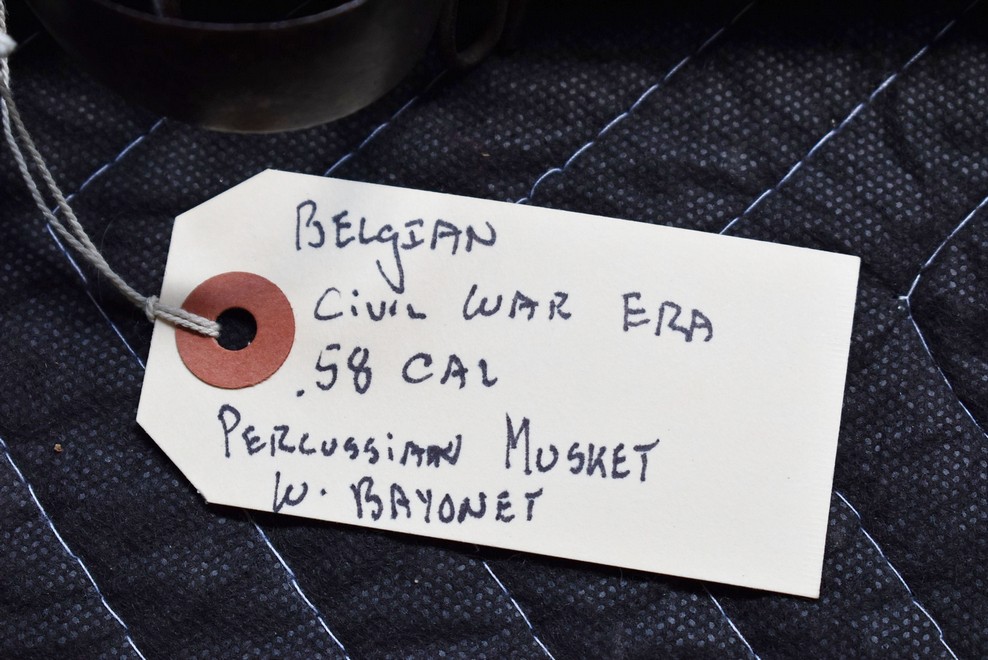 BELGIAN
CIVIL WAR ERA
.58 CAL
PERCUSSIAN MUSKET
W. BAYONET